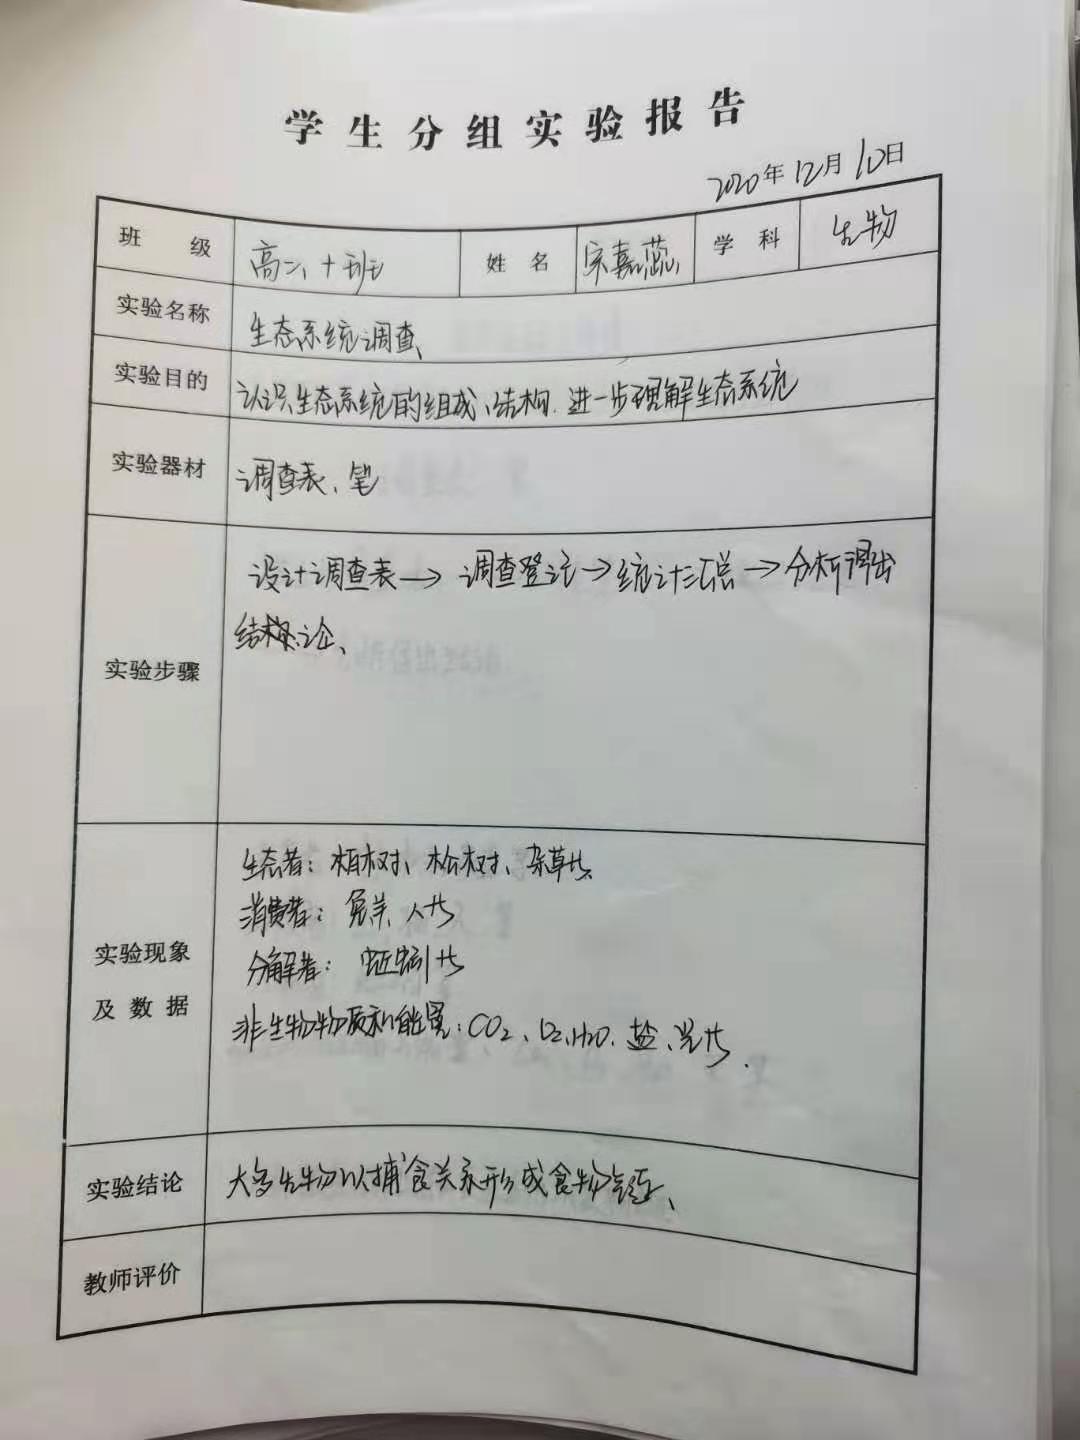 学生分组实验报告
2020年12月10日
班 级 高二、十班 姓 名 宋嘉蕊 学 科 生物
实验名称 生态系统调查
实验目的 认识生态系统的组成、结构.进一步理解生态系统
实验器材 调查表、笔
实验步骤 设计调查表→调查登记→统计汇总→分析得出
结论、
实验现象
及数据
生态者：栢树、松树、杂草等
消费者：兔羊、人等
分解者：蚯蚓等
非生物物质和能量：CO2、O2、H2O、盐、光等.
实验结论 大多生物以捕食关系形成食物链、
教师评价